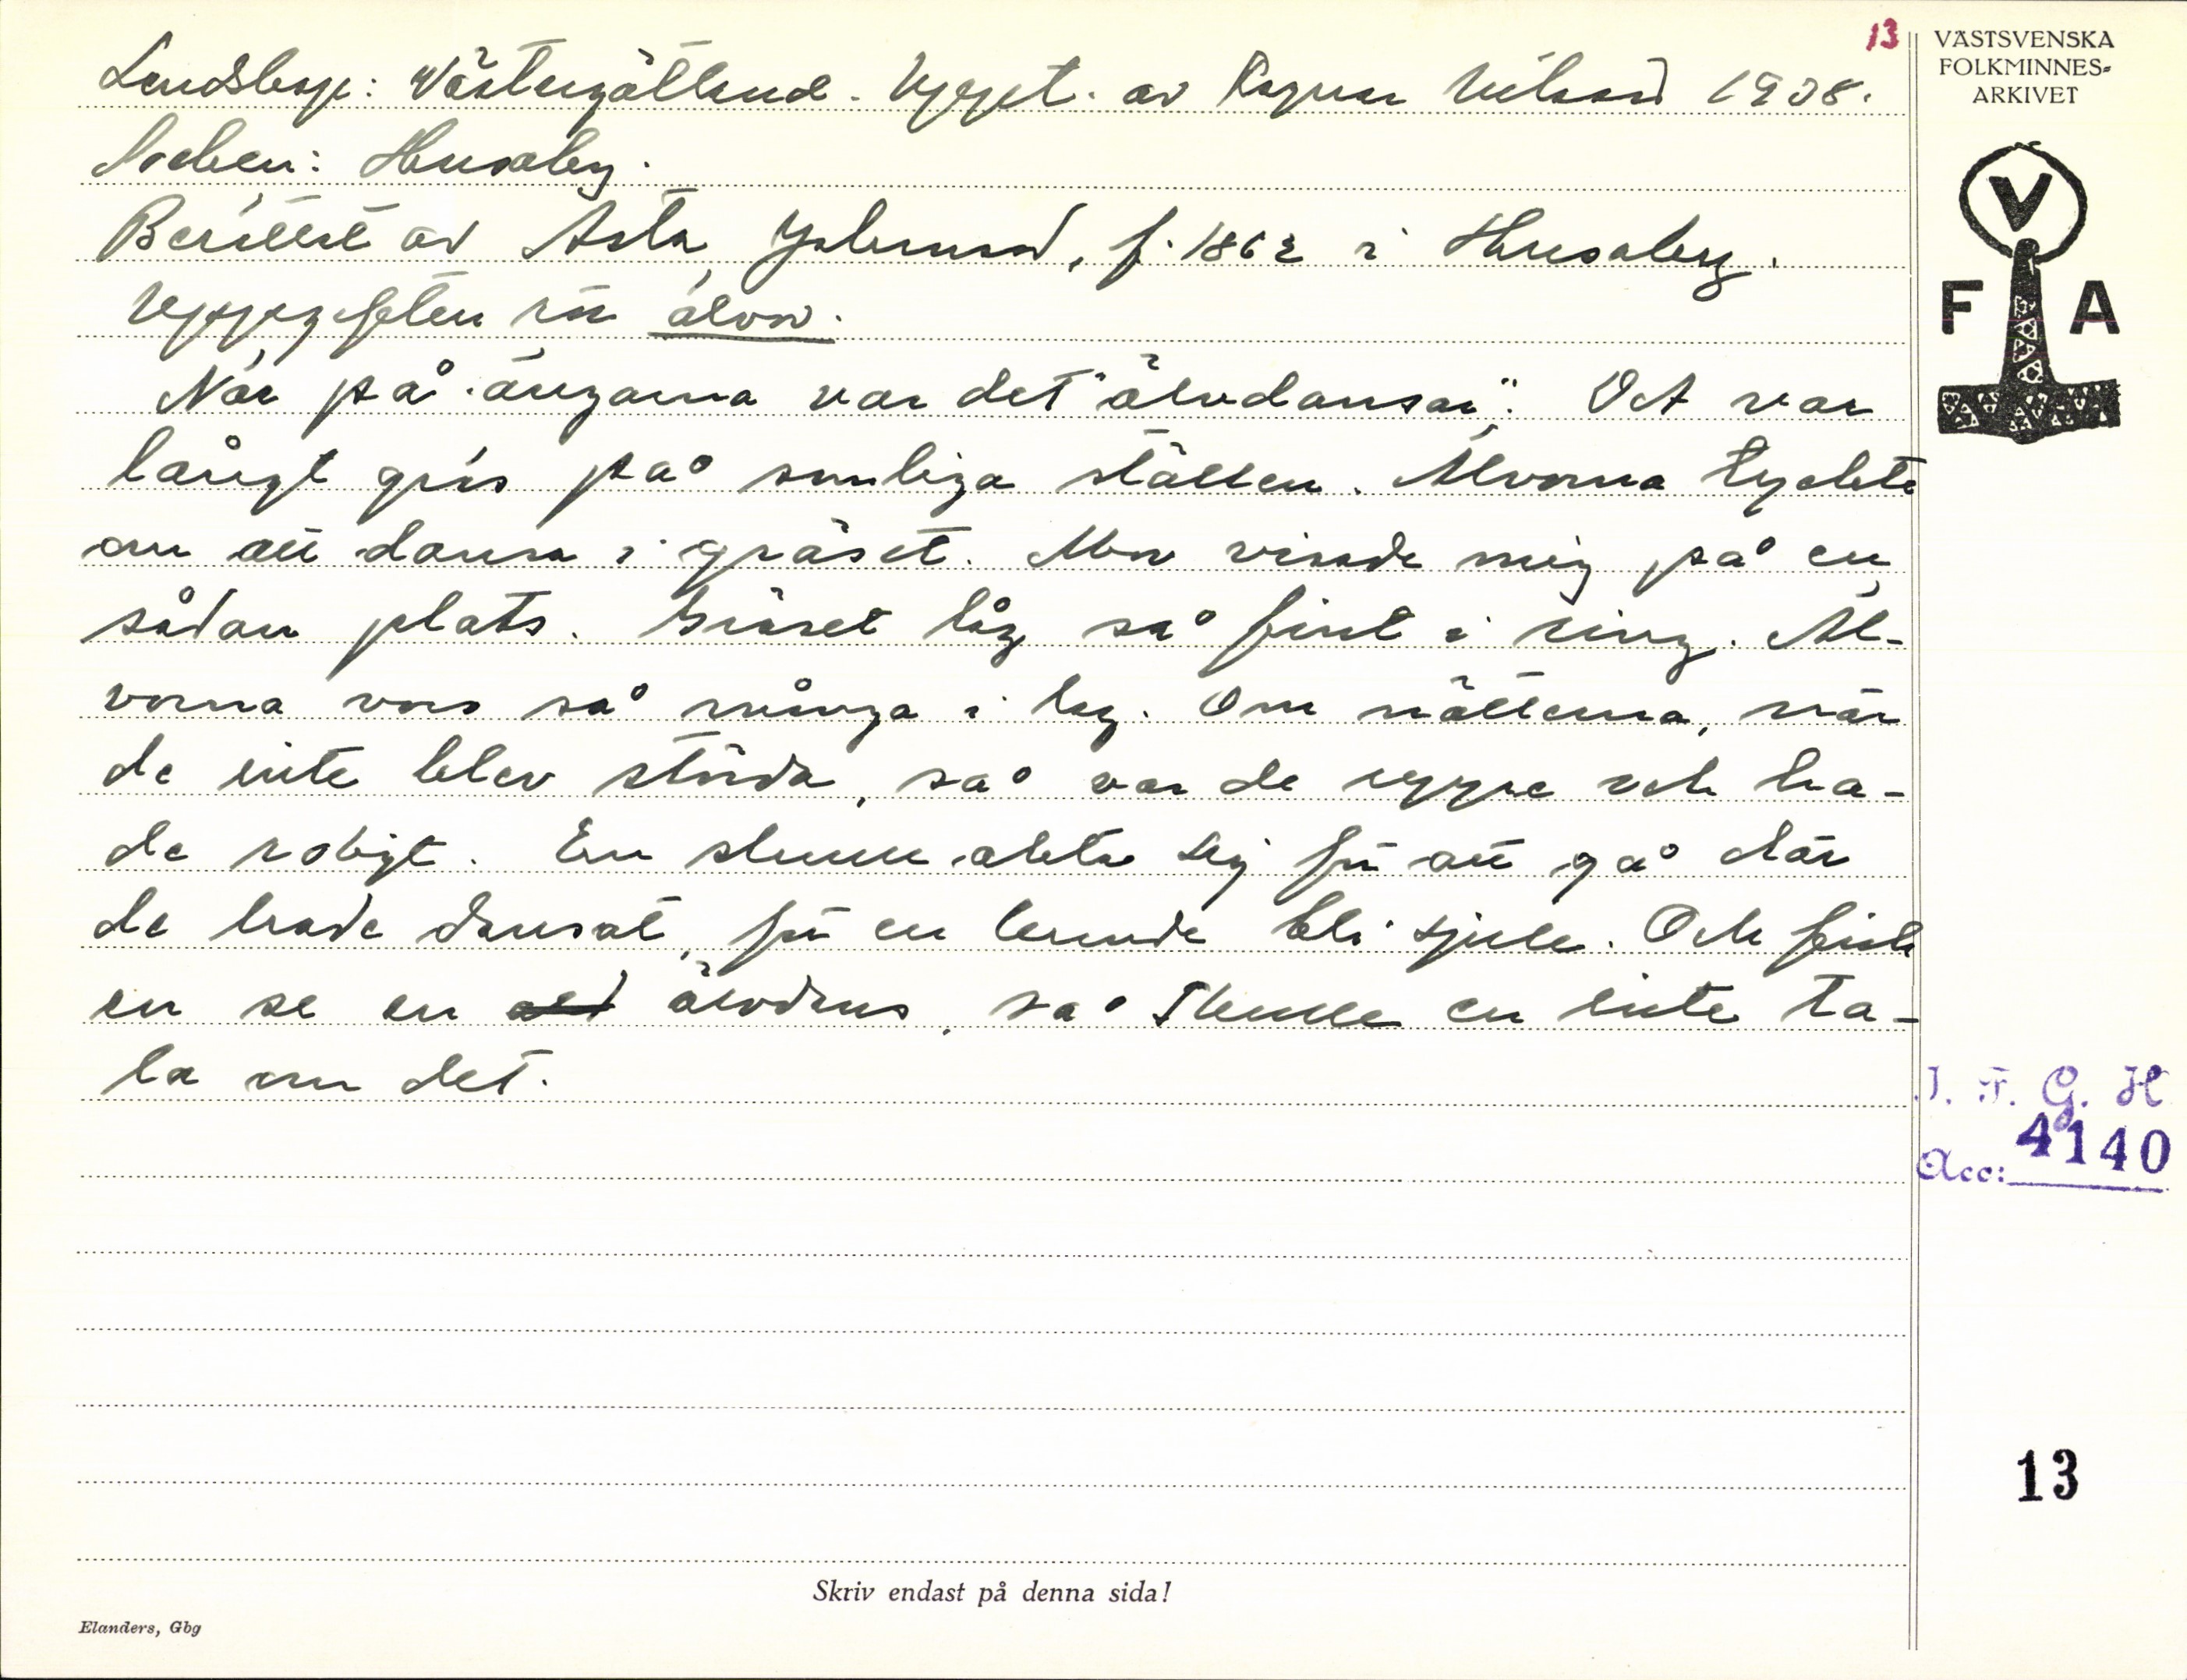 13
Landskap: Västergötland. Uppt. av Ragnar Nilsson 1938.
Socken: Husaby.
Berättat av Asta, f. 1862 i Husaby.
Uppgiften rör älvor.
När på ängarna var det "älvdansar". Det var
långt gräs på somliga ställen. Älvorna tyckte
om att dansa i gräset. Mor visade mig på en
sådan plats. Gräset låg så fint i ring. Äl-
vorna voro så många i lag. Om nätterna, när
de inte blev störda, så var de uppe och ha-
de roligt. En skulle akta sig för att gå där
de hade dansat, för en kunde bli sjuk. Och fick
en se en älvdans, så skulle en inte ta-
la om det.
VÄSTSVENSKA
FOLKMINNES-
ARKIVET
V
F A
I. F. G. H
Acc: 4140
13
Skriv endast på denna sida!
Elanders, Gbg